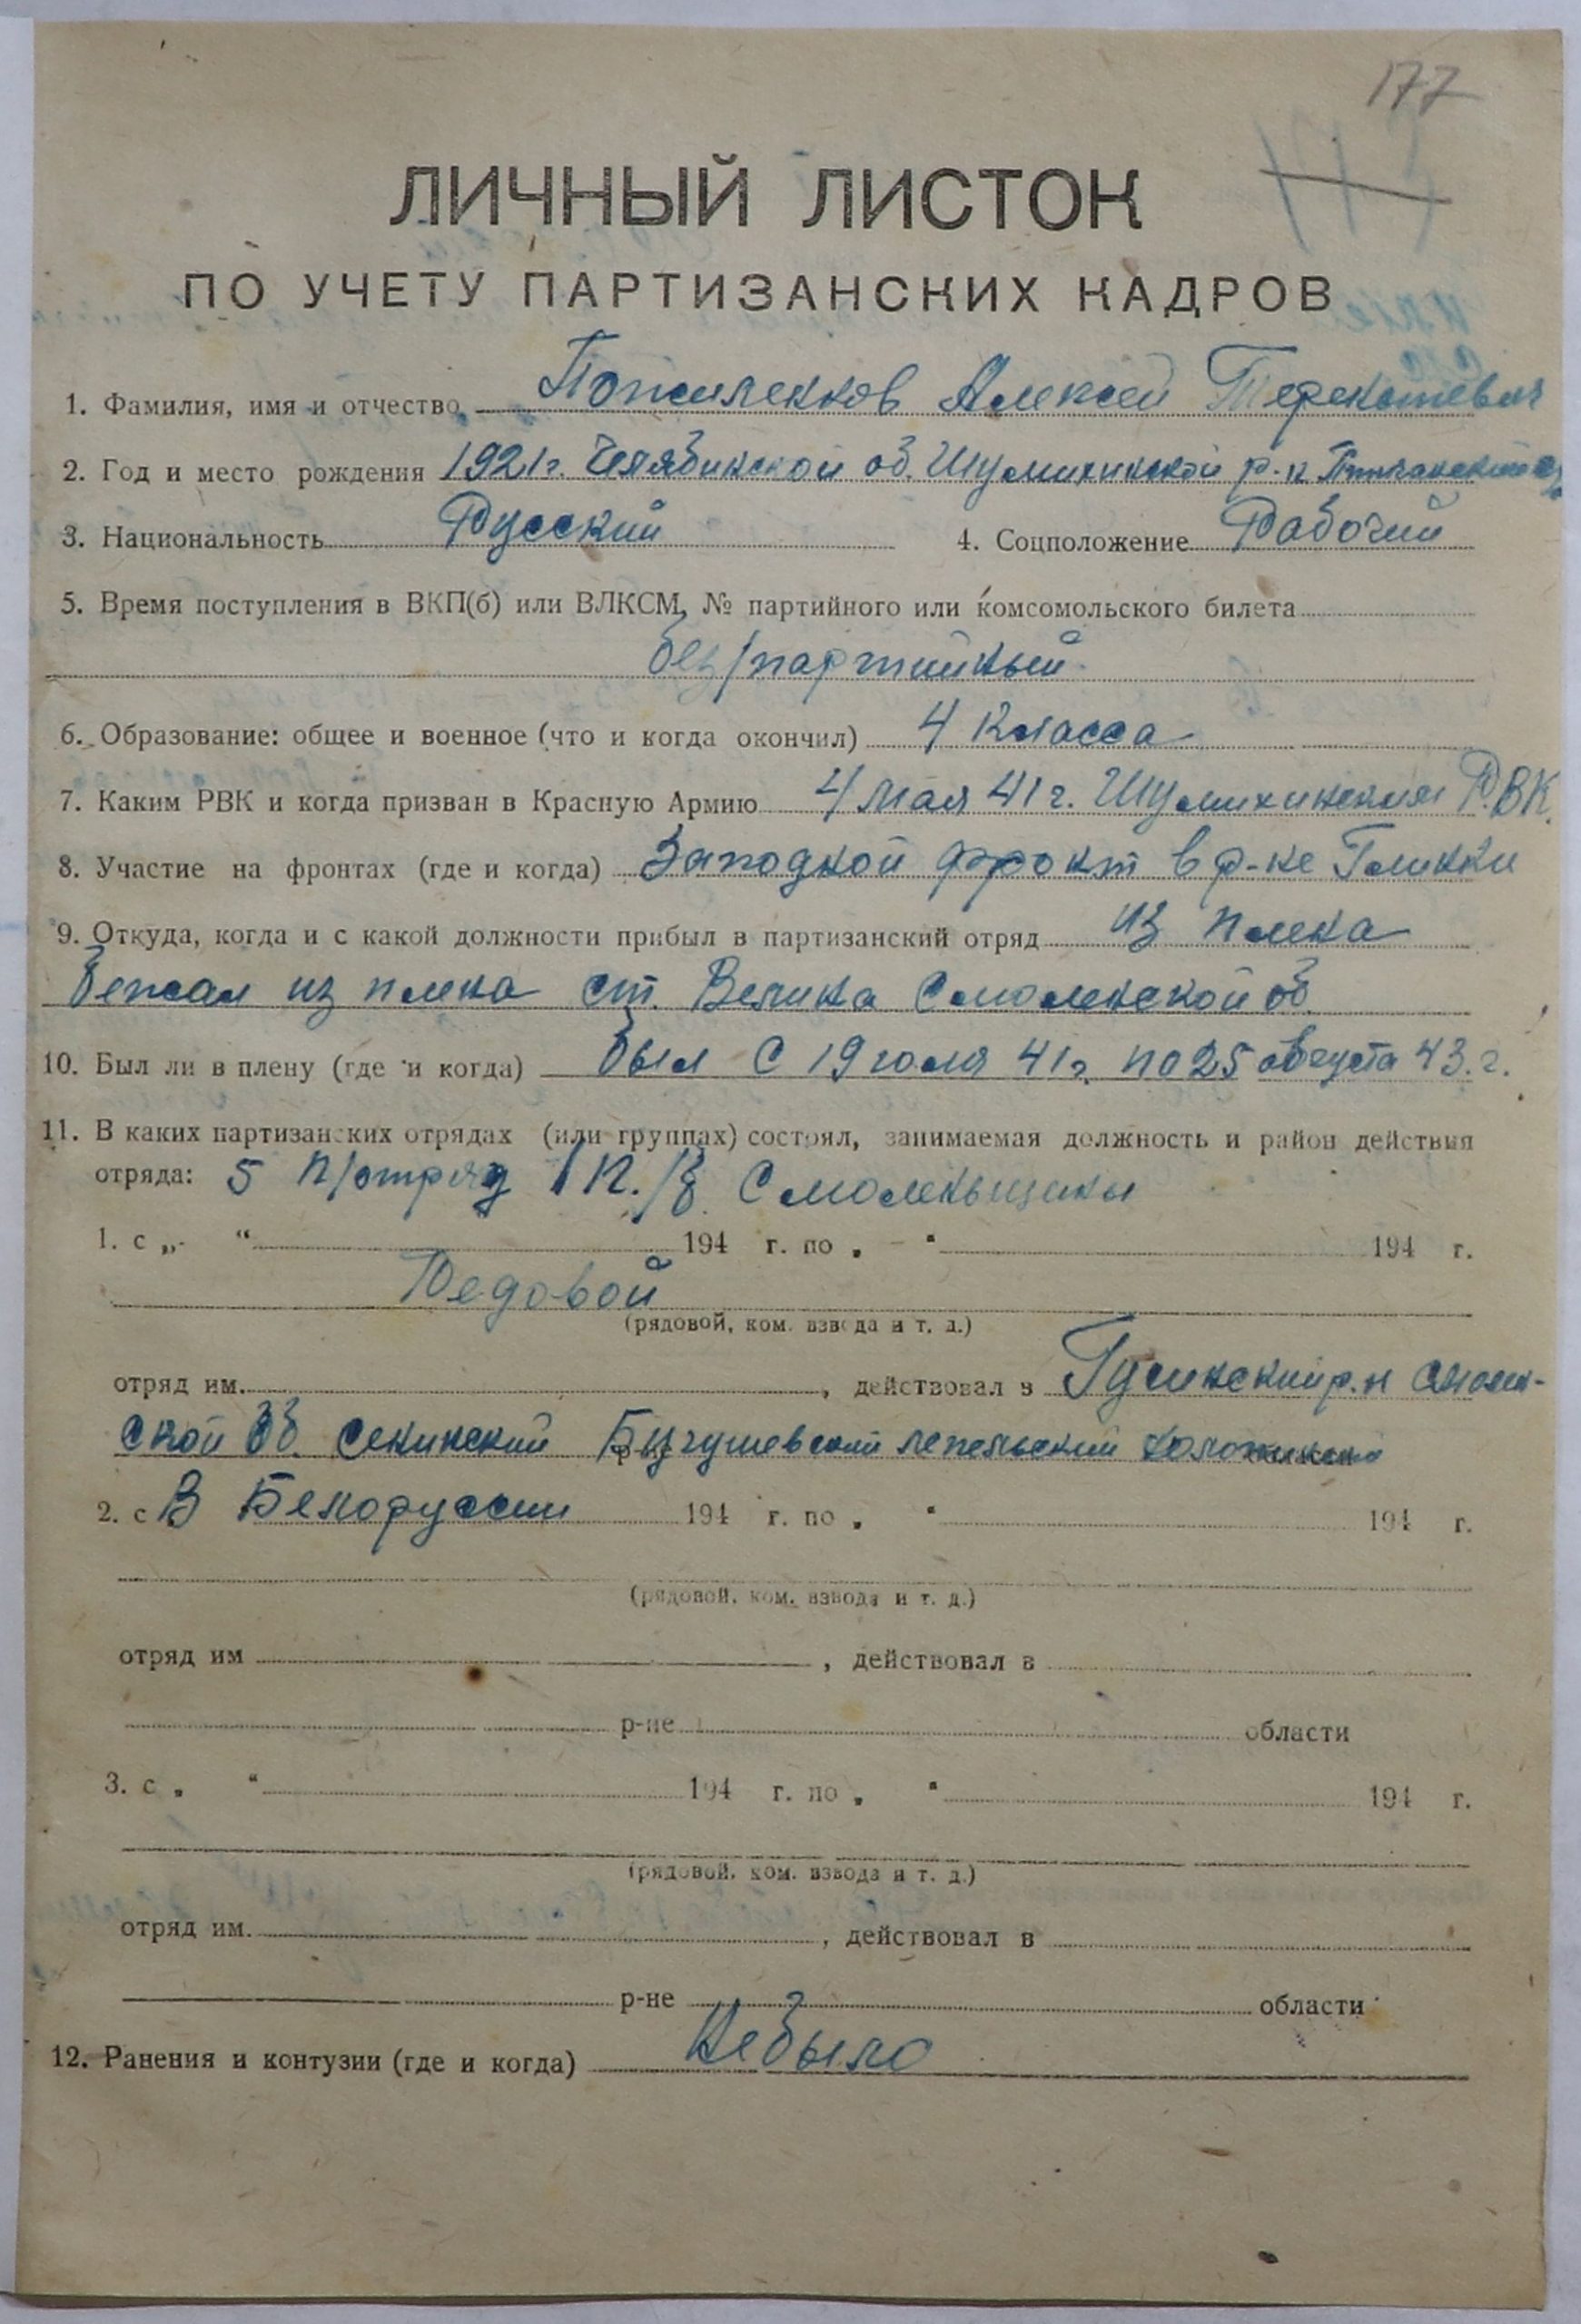 177
ЛИЧНЫЙ ЛИСТОК
ПО УЧЕТУ ПАРТИЗАНСКИХ КАДРОВ
1. Фамилия, имя и отчество Пожиленков Алексей Терентевич
2. Год и место рождения 1921г. Челябинской об. Шумихинской р-н
3. Национальность Русский 4. Соцположение Рабочий
5. Время поступления в ВКП(б) или ВЛКСМ, № партийного или комсомольского билета
без/партийный
6. Образование: общее и военное (что и когда окончил) 4 класса
7. Каким РВК и когда призван в Красную Армию 4 мая 41 г. Шумихинским Р.ВК.
8. Участие на фронтах (где и когда) Западной фронт в р-не Глинки
9. Откуда, когда и с какой должности прибыл в партизанский отряд из плена
бежал из плена ст. Велика Смоленской об.
10. Был ли в плену (где и когда) был с 19 июля 41г. по 25 августа 43.г.
11. В каких партизанских отрядах (или группах) состоял, занимаемая должность и район действия
отряда: 5 п/отряд 1 п./б. Смоленьщины
1. с „ “ 194 г. по „ “ 194 г.
Редовой
(рядовой, ком. взвода и т. д.)
отряд им. , действовал в Гусинский р.н Смолен-
ской об. Сенинский лепельский
2. с В Белоруссии 194 г. по „ “ 194 г.
(рядовой, ком. взвода и т. д.)
отряд им , действовал в
р-не области
3. с „ “ 194 г. по „ “ 194 г.
(рядовой, ком. взвода и т. д.)
отряд им. , действовал в
р-не области
12. Ранения и контузии (где и когда) Небыло